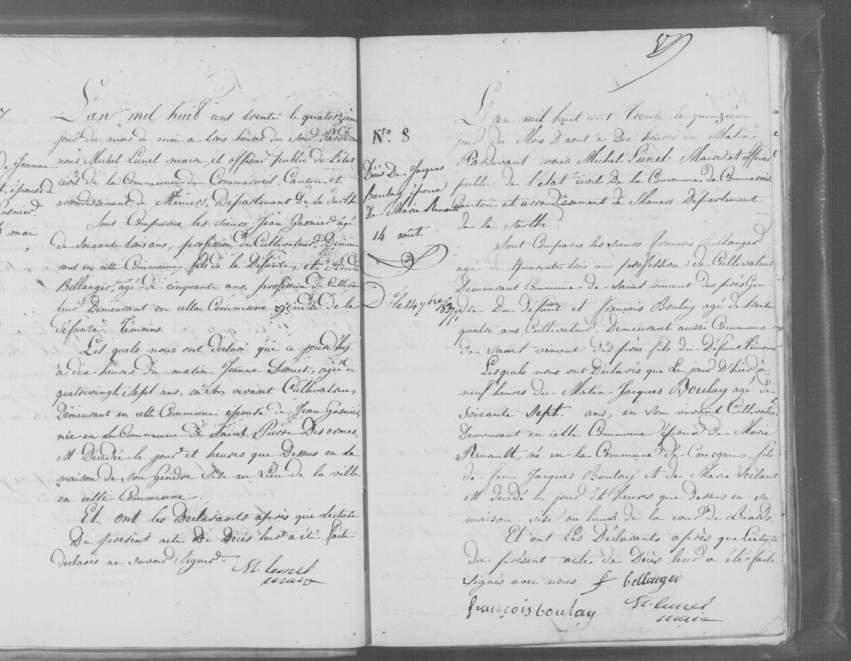 L'an mil huit cent trente le quatorzième
jour du mois de mai a trois heures du soir Pardevant
nous Michel Lunel maire et officier public de l'état
civil de la Commune de Commerveil Canton et
arrondissement de Mamers, département de la Sarthe
Sont Comparus les sieurs Jean Gasnier âgé
de soixante trois ans, profession de Cultivateur Demeu
rant en cette Commune de la Défunte, et André
Bellanger, agé de cinquante ans, profession de Cultiva
teur Demeurant en cette Commune gendre de la
défunte témoins
Les quels nous ont déclaré que ce jourd'huy
à dix heures du matin Jeanne agée de
quatrevingt sept ans, en son vivant Cultivatrice,
Demeurant en cette Commune épouse de Jean Gasnier,
née en la Commune de Saint Pierre Des ormes,
Est Décédée le jour et heures que Dessus en la
maison de son Gendre Sise au Lieu de la ville
en cette Commune.
Et ont les Déclarants après que lecture
Du present acte De Décès leur a été faite
declarés ne savoir Signer.
M. Lunel
maire
N° 8
Décès De Jacques
Boulay époux
De Marie Renault
14 août
L'an mil huit cent Trente le quinzième
jour du Mois D'aout a Dix heures du Matin
Pardevant nous Michel Lunel Maire et officier
public de l'état civil De la Commune de Commerveil
Canton et arrondissement de Mamers, Département
de la Sarthe.
Sont Comparus les Sieurs françois Bellanger
agé de Quarante trois ans profession de Cultivateur
Demeurant Commune de Saint vincent des prés Gen
dre Du défunt et françois Boulay agé de trente
quatre ans, Cultivateur Demeurant aussi Commune
de Saint vincent des prés fils du Défunt témoins
Lesquels nous ont Déclarés que Le jour D'hier à
neuf heures du Matin Jacques Boulay agé de
Soixante Sept ans, en son vivant Cultivateur
Demeurant en cette Commune époux de Marie
Renault, né en la Commune de fils
de feu Jacques Boulay et de Marie
Est décédé le jour et heures que dessus en sa
maison, sise au lieu de la cour de
Et ont Les Déclarants après que lecture
du présent acte de Décès leur a été faite
Signés avec nous. f bellanger
françois boulay M. Lunel
maire